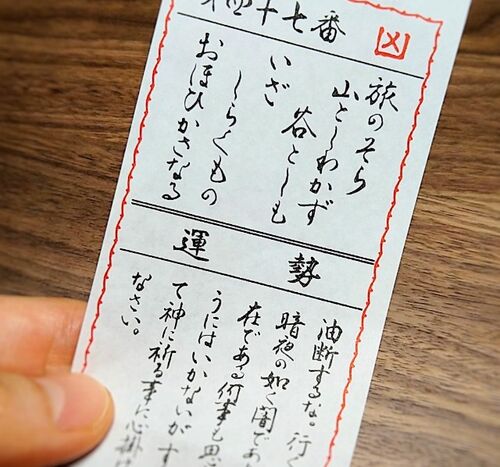 十七番
凶
旅のそら
山としわかず
谷としも
いざ
しらくもの
おほひかさなる
運勢
油断するな。行く
暗夜の如く闇であ
在である何事も思
うにはいかないがす
て神に祈る事に心掛け
なさい。